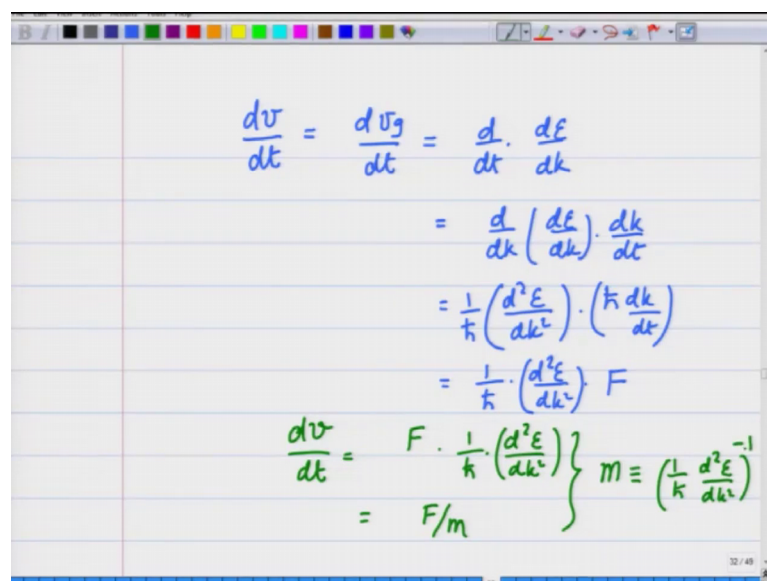 dv/dt = dvg/dt = d/dt · dε/dk
= d/dk (dε/dk) · dk/dt
= 1/ħ (d²ε/dk²) · (ħ dk/dt)
= 1/ħ · (d²ε/dk²) · F
dv/dt = F · 1/ħ · (d²ε/dk²) } m ≡ (1/ħ d²ε/dk²)⁻¹
= F/m
32/49